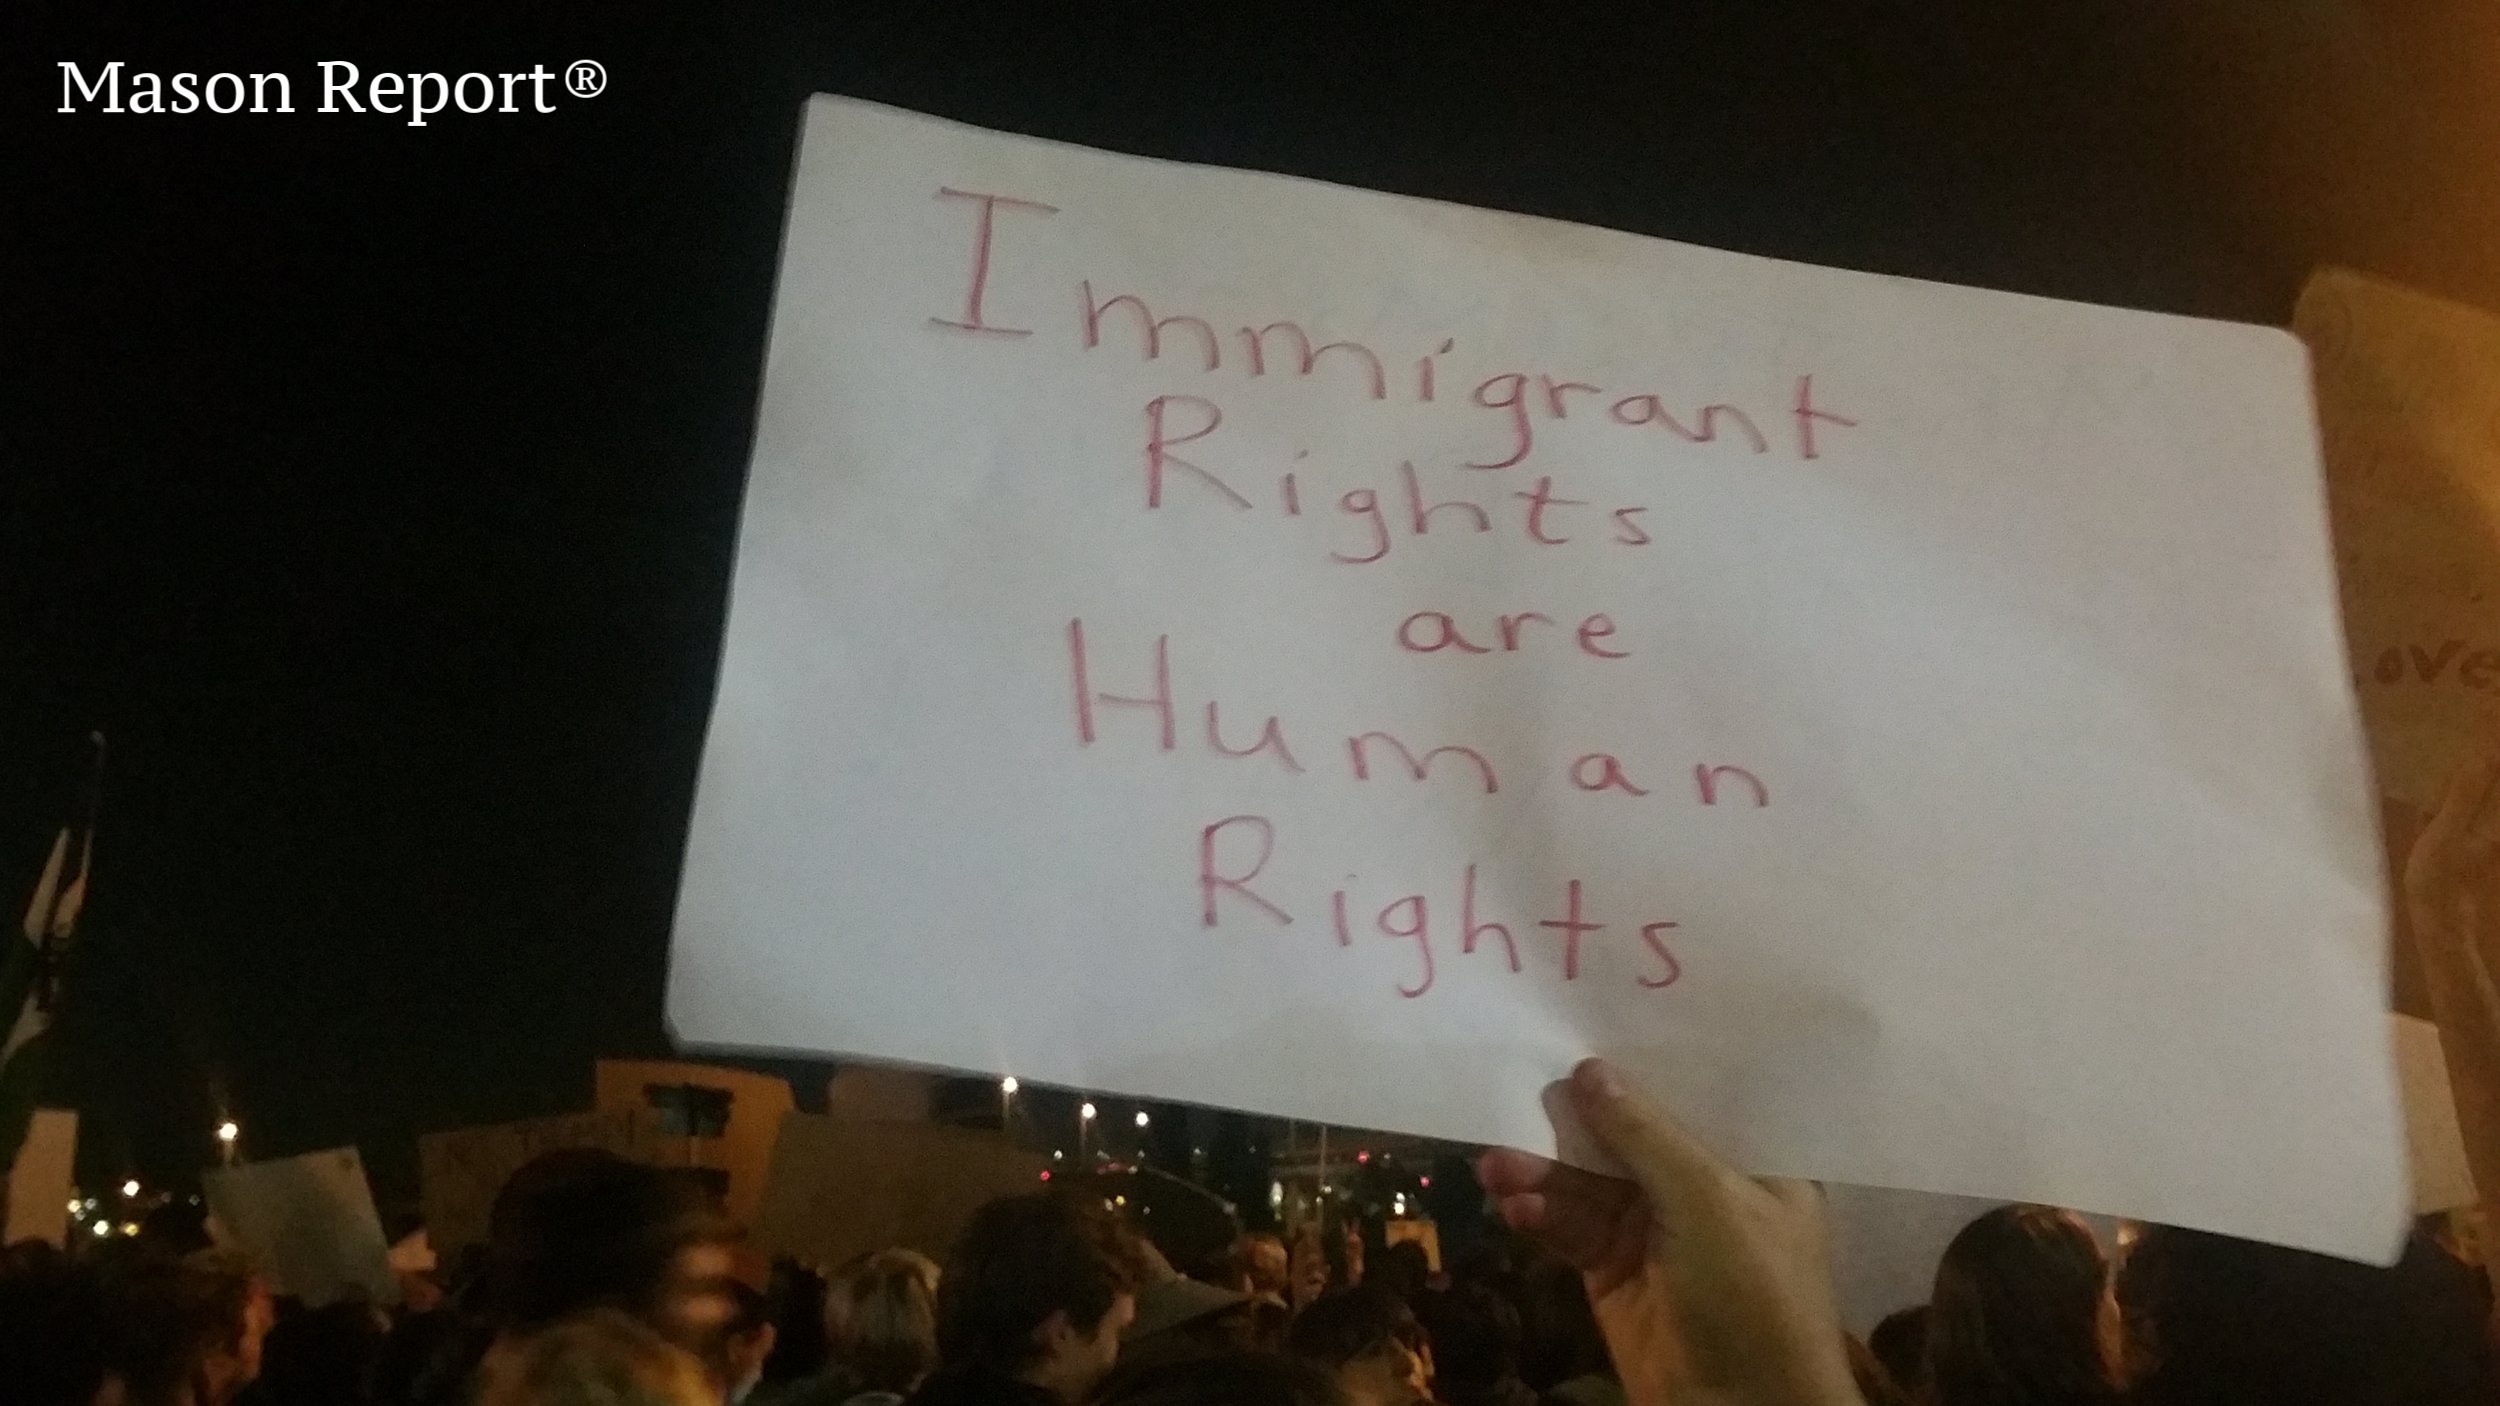 Mason Report®
Immigrant
Rights
are
Human
Rights